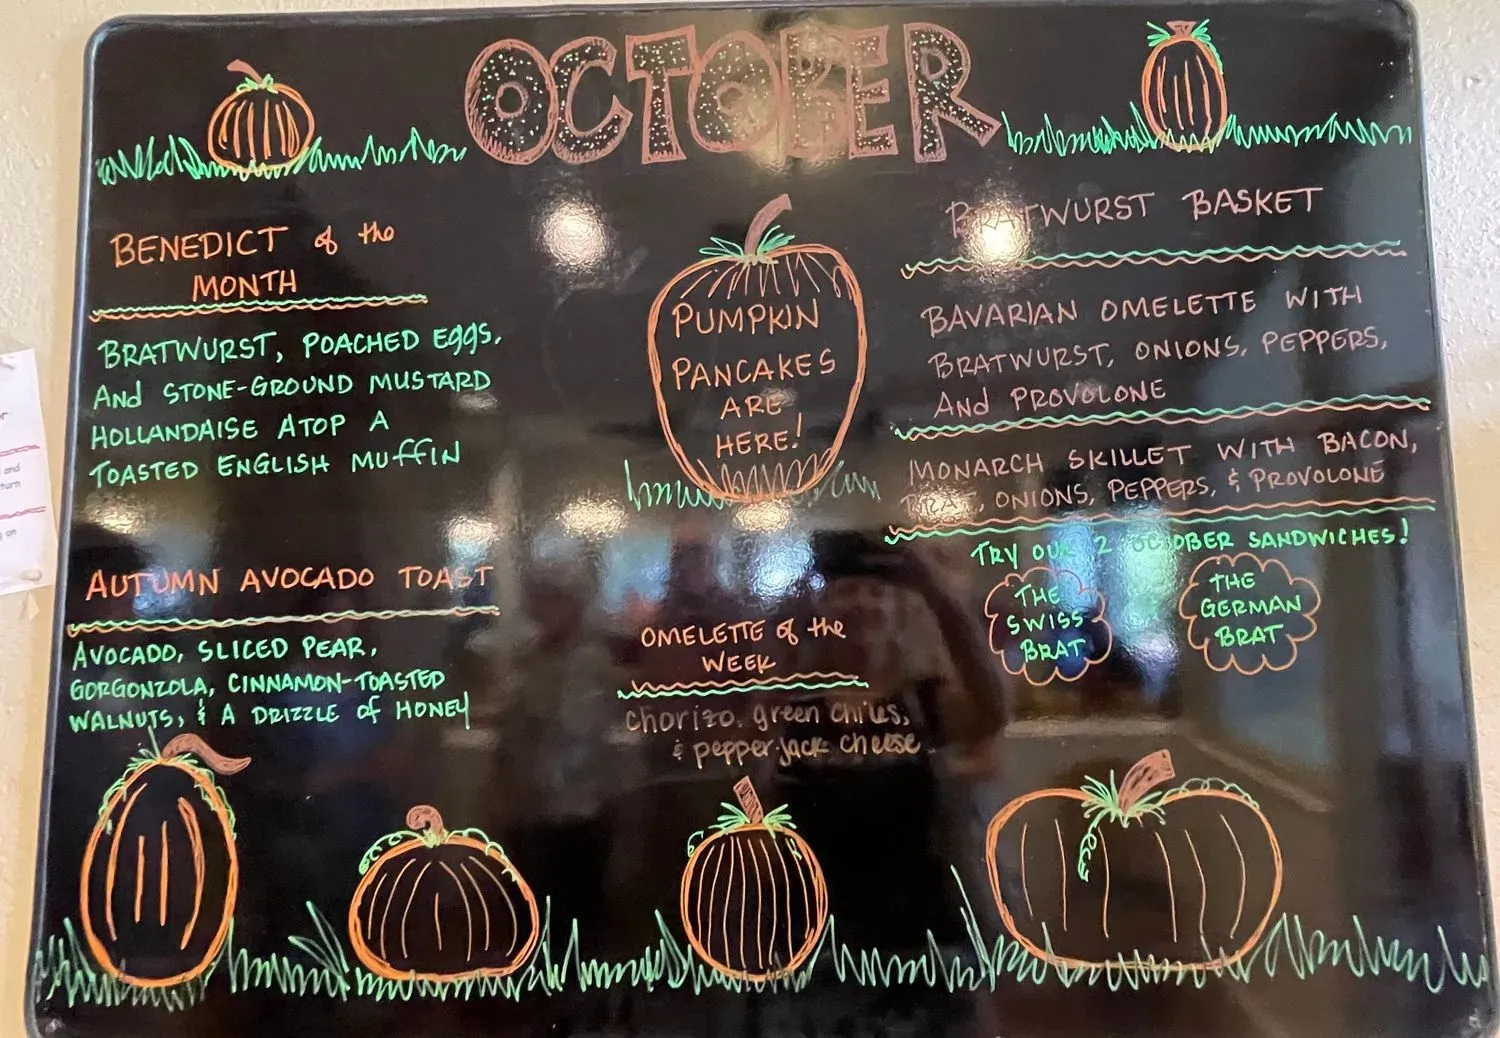 OCTOBER
BENEDICT of the
MONTH
BRATWURST, POACHED Eggs,
And STONE-GROUND MUSTARD
HOLLANDAISE ATOP A
TOASTED ENGLISH MUffIN
AUTUMN AVOCADO TOAST
AVOCADO, SLICED PEAR,
GORGONZOLA, CINNAMON-TOASTED
WALNUTS, & A DRIZZLE of HONEY
PUMPKIN
PANCAKES
ARE
HERE!
OMELETTE of the
WEEK
chorizo, green chiles,
& pepper jack cheese
BRATWURST BASKET
BAVARIAN OMELETTE WITH
BRATWURST, ONIONS, PEPPERS,
And PROVOLONE
MONARCH SKILLET WITH BACON,
BRAT, ONIONS, PEPPERS, & PROVOLONE
TRY OUR 2 OCTOBER SANDWICHES!
THE
SWISS
BRAT
THE
GERMAN
BRAT
and
turn
on